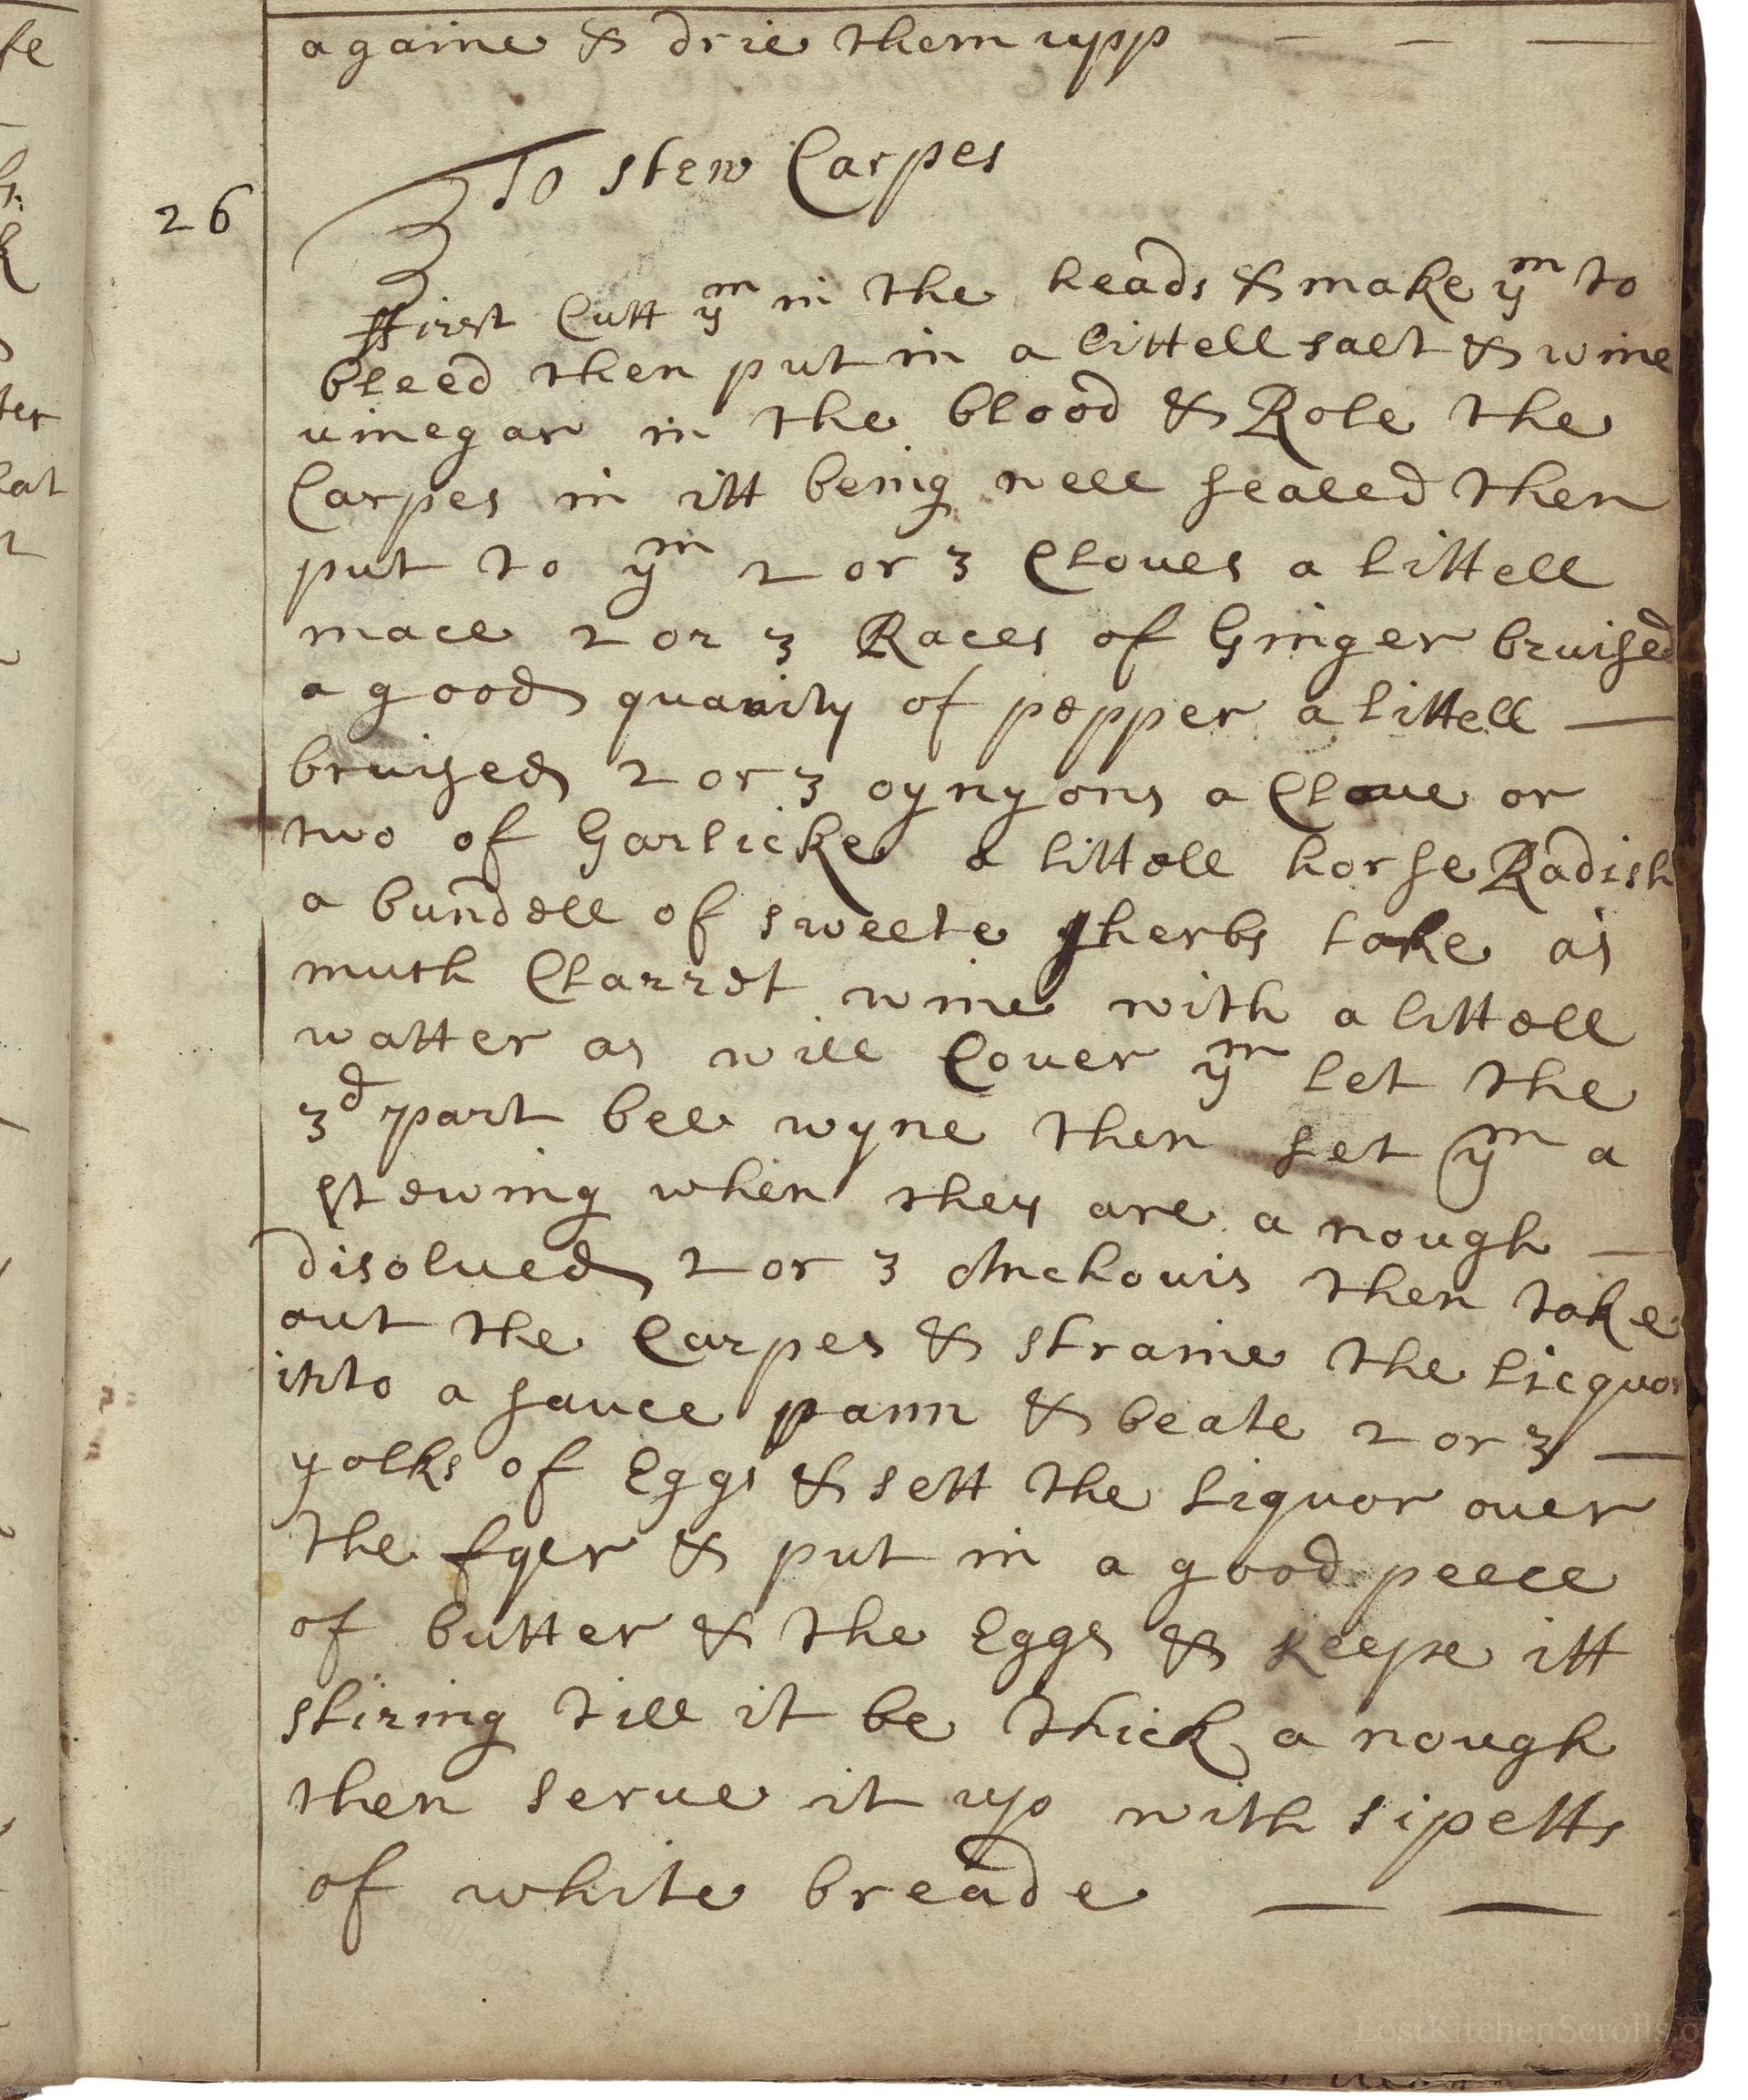 againe & drie them upp — — —
To stew Carpes
26
ffirst Cutt yᵐ in the heads & make yᵐ to
bleed then put in a littell salt & wine
uinegar in the blood & Role the
Carpes in itt being well scaled then
put to yᵐ 2 or 3 Cloues a littell
mace 2 or 3 Races of Ginger bruised
a good quanity of pepper a littell —
bruised 2 or 3 oynyons a Cloue or
two of Garlicke a littell horse Radish
a bundell of sweete herbs take as
much Clarret wine with a littell
watter as will Couer yᵐ let the
3ᵈ part bee wyne then set yᵐ a
stewing when they are a nough —
disolued 2 or 3 Anchouis then take
out the Carpes & straine the licquor
into a sauce pann & beate 2 or 3 —
yolks of Eggs & sett the liquor ouer
the fyer & put in a good peece
of butter & the Eggs & keepe itt
stiring till it be thick a nough
then serue it up with sipetts
of white breade — —
LostKitchenScrolls.o